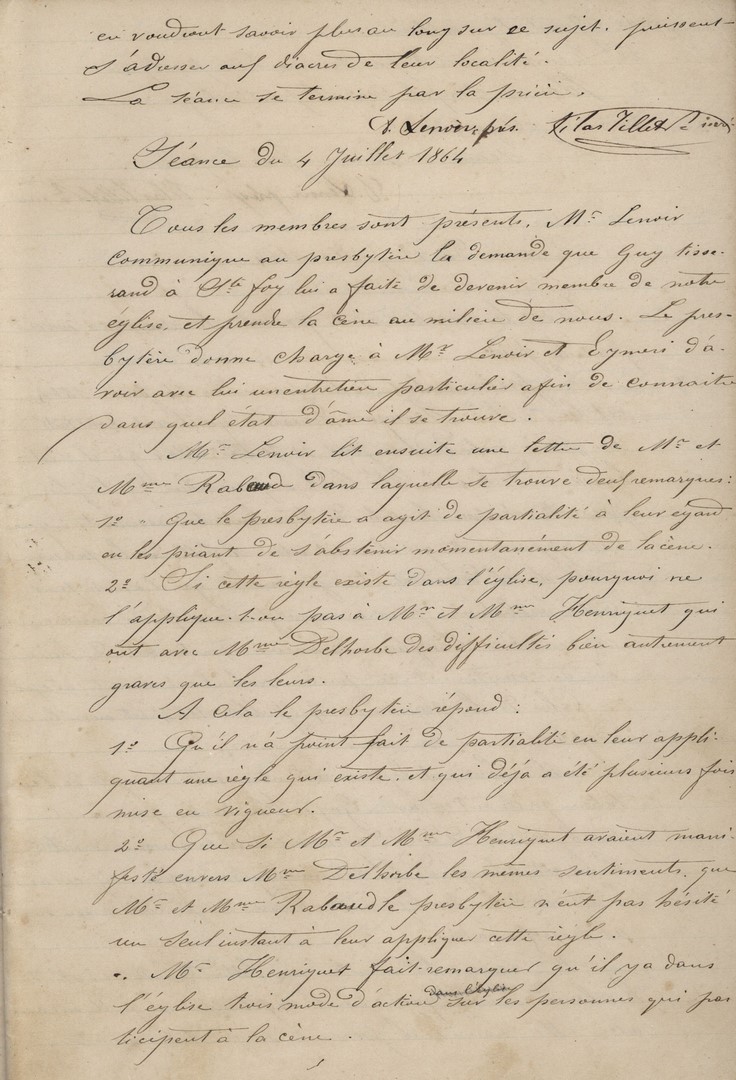 en voudront savoir plus au long sur ce sujet. puissent
s'adresser auf diacres de leur localité.
La séance se termine par la prière.
A. Lenoir, prés. Silas Tillet secré
Séance du 4 Juillet 1864
Tous les membres sont présents. Mr Lenoir
communique au presbytère la demande que Guy tisse-
rand à Ste foy lui a faite de devenir membre de notre
église, et prendre la cène au milieu de nous. Le pres-
bytère donne charge à Mr Lenoir et Eymeri d'a-
voir avec lui un entretien particulier afin de connaitre
dans quel état d'âme il se trouve.
Mr Lenoir lit ensuite une lettre de Mr et
Mme Rabaud dans laquelle se trouve deuf remarques:
1º Que le presbytère a agit de partialité à leur egard
en les priant de s'abstenir momentanément de la cène.
2º Si cette règle existe dans l'église, pourquoi ne
l'applique-t-on pas à Mr et Mme Henriquet qui
ont avec Mme Delhorbe des difficultés bien autrement
graves que les leurs.
A cela le presbytère répond:
1º Qu'il n'a point fait de partialité en leur appli-
quant une règle qui existe. et qui déja a été plusieurs fois
mise en vigueur.
2º Que si Mr et Mme Henriquet avaient mani-
festé envers Mme Delhorbe les mêmes sentiments, que
Mr et Mme Rabaud le presbytère n'eut pas hésité
un seul instant à leur appliquer cette règle.
Mr Henriquet fait remarquer qu'il y a dans
l'église trois mode d'action dans l'église sur les personnes qui par
ticipent à la cène.